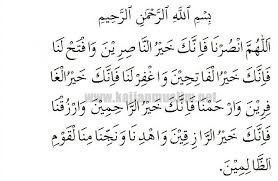 بِسْمِ اللَّهِ الرَّحْمَنِ الرَّحِيمِ
اَللّٰهُمَّ انْصُرْنَا فَاِنَّكَ خَيْرُ النَّاصِرِيْنَ وَافْتَحْ لَنَا
فَاِنَّكَ خَيْرُ الْفَاتِحِيْنَ وَاغْفِرْ لَنَا فَاِنَّكَ خَيْرُ الْغَا
فِرِيْنَ وَارْحَمْنَا فَاِنَّكَ خَيْرُ الرَّاحِمِيْنَ وَارْزُقْنَا
فَاِنَّكَ خَيْرُ الرَّازِقِيْنَ وَاهْدِنَا وَنَجِّنَا مِنَ لْقَوْمِ
الظَّالِمِيْنَ.